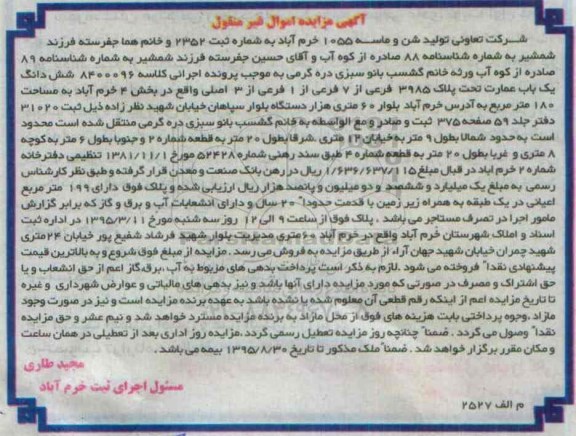 آگهی مزایده اموال غیر منقول
شــرکت تعاونی تولید شن و ماســه ۱۰۵۵ خرم آباد به شماره ثبت ۲۳۵۲ و خانم هما جفرسته فرزند
شمشیر به شماره شناسنامه ۸۸ صادره از کوه آب و آقای حسین جفرسته فرزند شمشیر به شماره شناسنامه ۸۹
صادره از کوه آب ورثه خانم گشسب بانو سبزی دره گرمی به موجب پرونده اجرائی کلاسه ۸۴۰۰۰۹۶ شش دانگ
یک باب عمارت تحت پلاک ۳۹۸۵ فرعی از ۷ فرعی از ۱ فرعی از ۳ اصلی واقع در بخش ۴ خرم آباد به مساحت
۱۸۰ متر مربع به آدرس خرم آباد بلوار ۶۰ متری هزار دستگاه بلوار سپاهان خیابان شهید نظر زاده ذیل ثبت ۳۱۰۲۰
دفتر جلد ۵۹ صفحه ۳۷۵ ثبت و صادر و مع الواسطه به خانم گشسب بانو سبزی دره گرمی منتقل شده است محدود
است به حدود شمالا بطول ۹ متر به خیابان ۱۲ متری .شرقا بطول ۲۰ متر به قطعه شماره ۲ و جنوبا بطول ۶ متر به کوچه
۸ متری و غربا بطول ۲۰ متر به قطعه شماره ۴ طبق سند رهنی شماره ۵۲۴۲۸ مورخ ۱۳۸۱/۱۱/۱ تنظیمی دفترخانه
شماره ۲ خرم اباد در قبال مبلغ ۱/۶۳۶/۶۳۷/۱۱۵ ریال در رهن بانک صنعت و معدن قرار گرفته و طبق نظر کارشناس
رسمی به مبلغ یک میلیارد و ششصد و دو میلیون و پانصد هزار ریال ارزیابی شده و پلاک فوق دارای ۱۹۹ متر مربع
اعیانی در یک طبقه به همراه زیر زمین با قدمت حدوداً ۲۰ سال و دارای انشعابات آب و برق و گاز که برابر گزارش
مامور اجرا در تصرف مستاجر می باشد . پلاک فوق از ساعت ۹ الی ۱۲ روز سه شنبه مورخ ۱۳۹۵/۳/۱۱ در اداره ثبت
اسناد و املاک شهرستان خرم آباد واقع در خرم آباد ۶۰ متری مدیریت بلوار شهید فرشاد شفیع پور خیابان ۲۴ متری
شهید چمران خیابان شهید جهان آراء از طریق مزایده به فروش می رسد . مزایده از مبلغ فوق شروع و به بالاترین قیمت
پیشنهادی نقداً فروخته می شود .لازم به ذکر است پرداخت بدهی های مربوط به آب ،برق،گاز اعم از حق انشعاب و یا
حق اشتراک و مصرف در صورتی که مورد مزایده دارای آنها باشد و نیز بدهی های مالیاتی و عوارض شهرداری و غیره
تا تاریخ مزایده اعم از اینکه رقم قطعی آن معلوم شده یا نشده باشد به عهده برنده مزایده است و نیز در صورت وجود
مازاد ،وجوه پرداختی بابت هزینه های فوق از محل مازاد به برنده مزایده مسترد خواهد شد و نیم عشر و حق مزایده
نقداً وصول می گردد . ضمناً چنانچه روز مزایده تعطیل رسمی گردد ،مزایده روز اداری بعد از تعطیلی در همان ساعت
و مکان مقرر برگزار خواهد شد . ضمناً ملک مذکور تا تاریخ ۱۳۹۵/۸/۳۰ بیمه می باشد .
مجید طاری
مسئول اجرای ثبت خرم آباد
م الف ۲۵۲۷